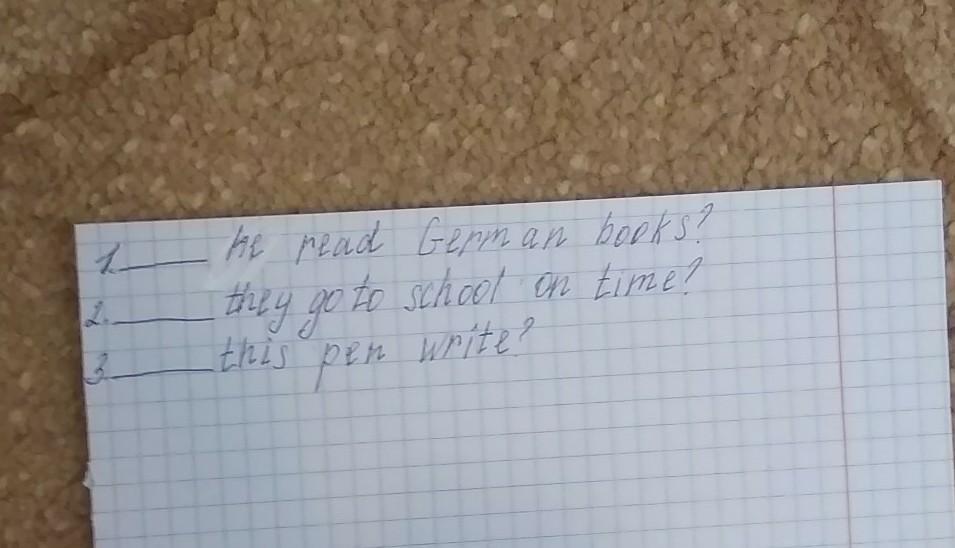 1. ____ he read German books?
2. ____ they go to school on time?
3. ____ this pen write?